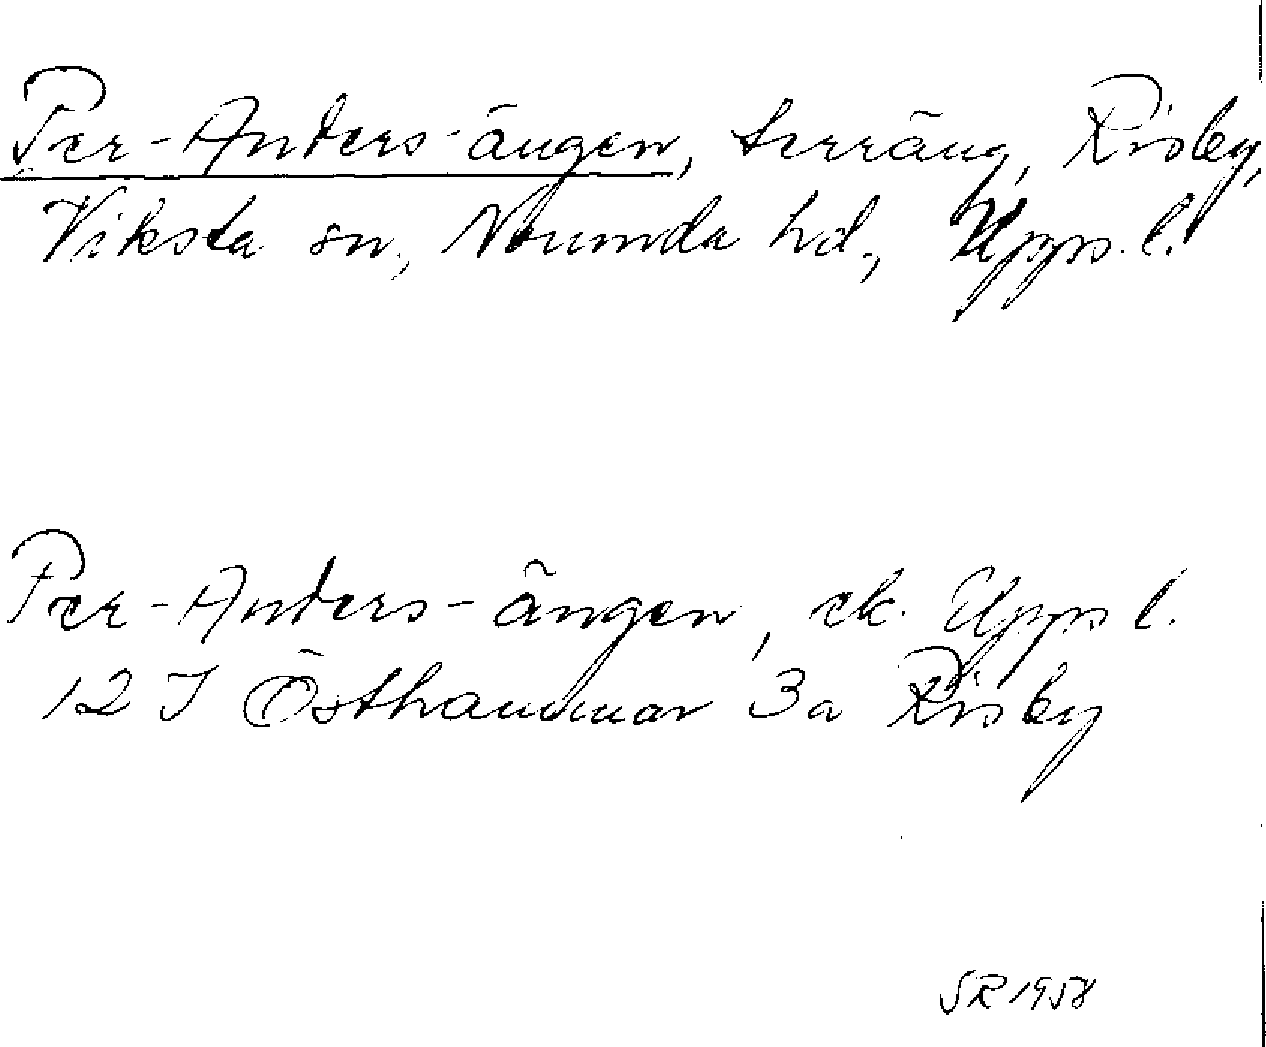 Per-Anders-ängen, terräng, Risby,
Viksta sn, Norunda hd., Uppl.
Per-Anders-ängen, ek. Uppl.
12 I Östhammar 3a Risby
SR 1958